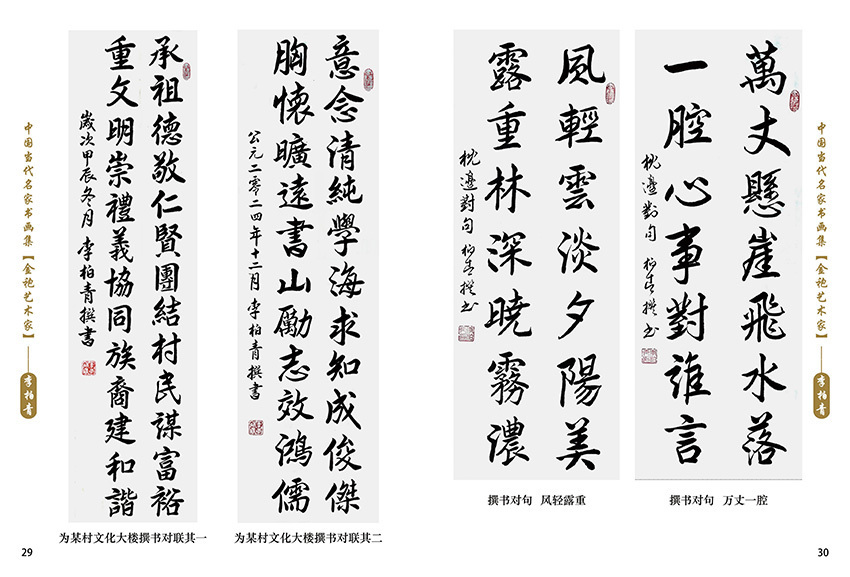 中国当代名家书画集【金袍艺术家】
李柏青
承祖德敬仁賢團結村民謀富裕
重文明崇禮義協同族裔建和諧
歲次甲辰冬月 李柏青撰書
为某村文化大楼撰书对联其一
29
意念清純學海求知成俊傑
胸懷曠遠書山勵志效鴻儒
公元二零二四年十二月 李柏青撰書
为某村文化大楼撰书对联其二
風輕雲淡夕陽美
露重林深曉霧濃
枕邊對句 柏青撰书
撰书对句 风轻露重
萬丈懸崖飛水落
一腔心事對誰言
枕邊對句 柏青撰书
撰书对句 万丈一腔
中国当代名家书画集【金袍艺术家】
李柏青
30